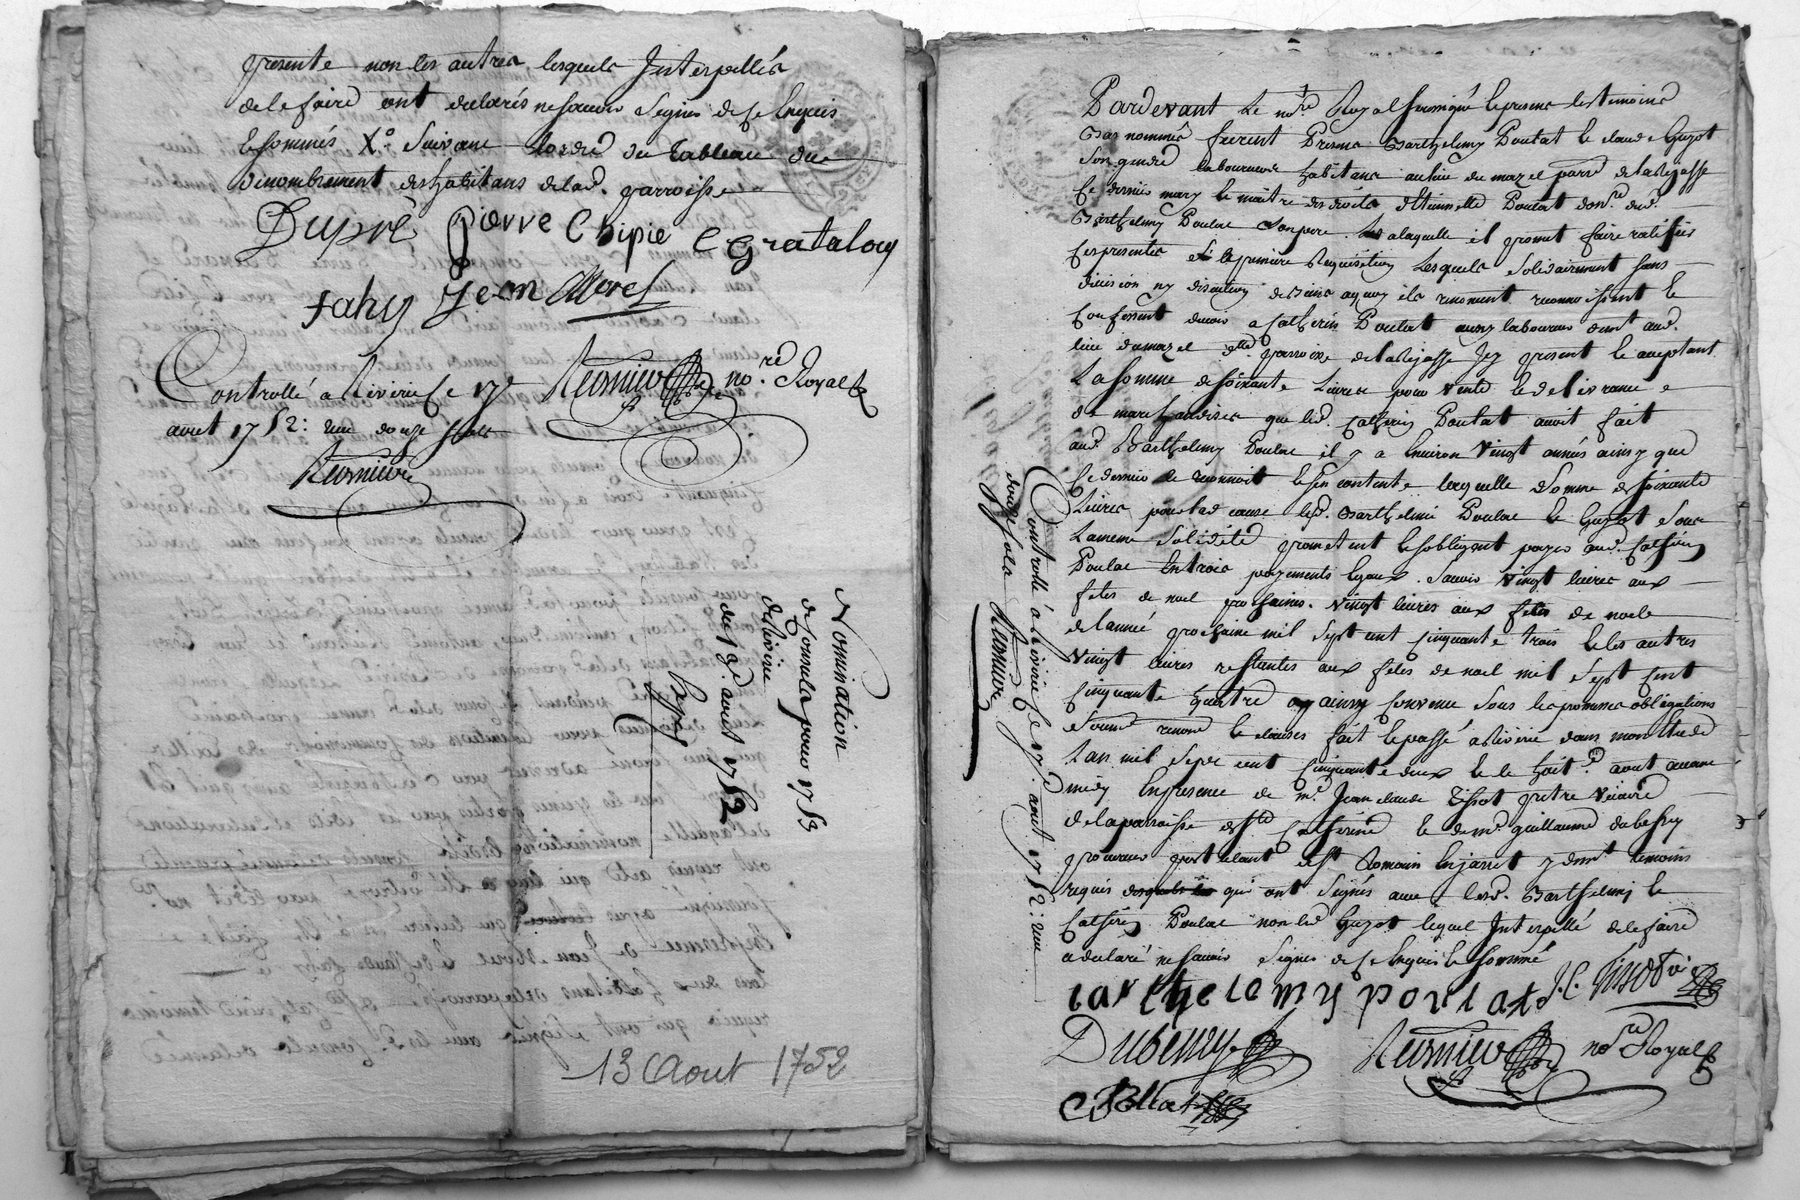 presente non les autres lesquels Interpellés
de le faire ont declarés ne scavoir signer de ce Enquis
& sommés X.° Suivant lordre du tableau du
denombrement des habitans de lad. parroisse
Dupré pierre Chipie C Grataloup
fahy Jean Morel
Controllé a Riverie ce 17e
aout 1752: reçu douze sols
no.re Royal
Nomination
de Consuls pour 1753
de riverie
du 13e. aout 1752
13 Aout 1752
Pardevant Le no.re Royal soussigné & presens les temoins
bas nommés furent Presens Barthelemy Poulat & claude Guyot
son gendre laboureurs habitans au lieu du mazel parr.e de larajasse
ce dernier mary & maître des droits d'Etiennette Poulat don.re dud.
Barthelemy Poulat son pere a laquelle il promet faire ratifier
ces presentes a la premiere Requisition Lesquels solidairement sans
division ny discution des biens a quoy ils renoncent reconnoissent &
Confessent devoir a Catherin Poulat aussy laboureur dem.t aud.
lieu du mazel d.te parroisse de larajasse Icy present & acceptant
La somme de soixante Livres pour vente & delivrance
de marchandises que led. Catherin Poulat avoit fait
aud. Barthelemy Poulat il y a Environ vingt années ainsy que
ce dernier le reconnoit & sen contente laquelle somme de soixante
Livres pour lad. cause led. Barthelemi Poulat & Guyot sous
La meme solidité promettent & sobligent payer aud. Catherin
Poulat En trois payements Egaux. Scavoir vingt livres aux
fetes de noel prochaines. vingt livres aux fetes de noel
de lannée prochaine mil sept cent cinquante trois & les autres
vingt livres restantes aux fetes de noel mil sept cent
cinquante quatre ainsy convenu sous les promesses obligations
soum.s renon.s & clauses fait & passé a riverie dans mon Etude
Lan mil sept cent cinquante deux & le huit.e aout avant
midy En presence de m.e Jean claude Tissot pretre vicaire
de la parroisse de s.te Catherine & de m.e guillaume dubessy
procureur postulant de st. Romain En jarret y dem.t temoins
requis qui ont signés avec lesd. Barthelemy &
Catherin Poulat non led. Guyot lequel Interpellé de le faire
a declaré ne scavoir signer de ce Enquis & sommé
Controllé à Riverie ce 17e. aout 1752: reçu
douze sols
J. C. Tissot vi.re
Dubessy
no.re Royal
C Pollat